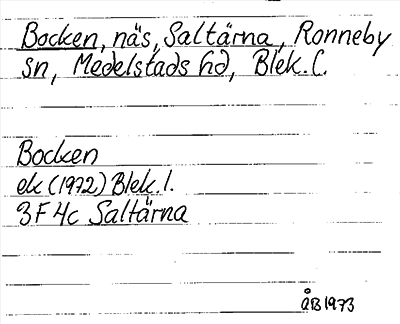 Bocken, näs, Saltärna, Ronneby
sn, Medelstads hd, Blek. l.
Bocken
ek (1972) Blek. l.
3F4c Saltärna
ÅB1973